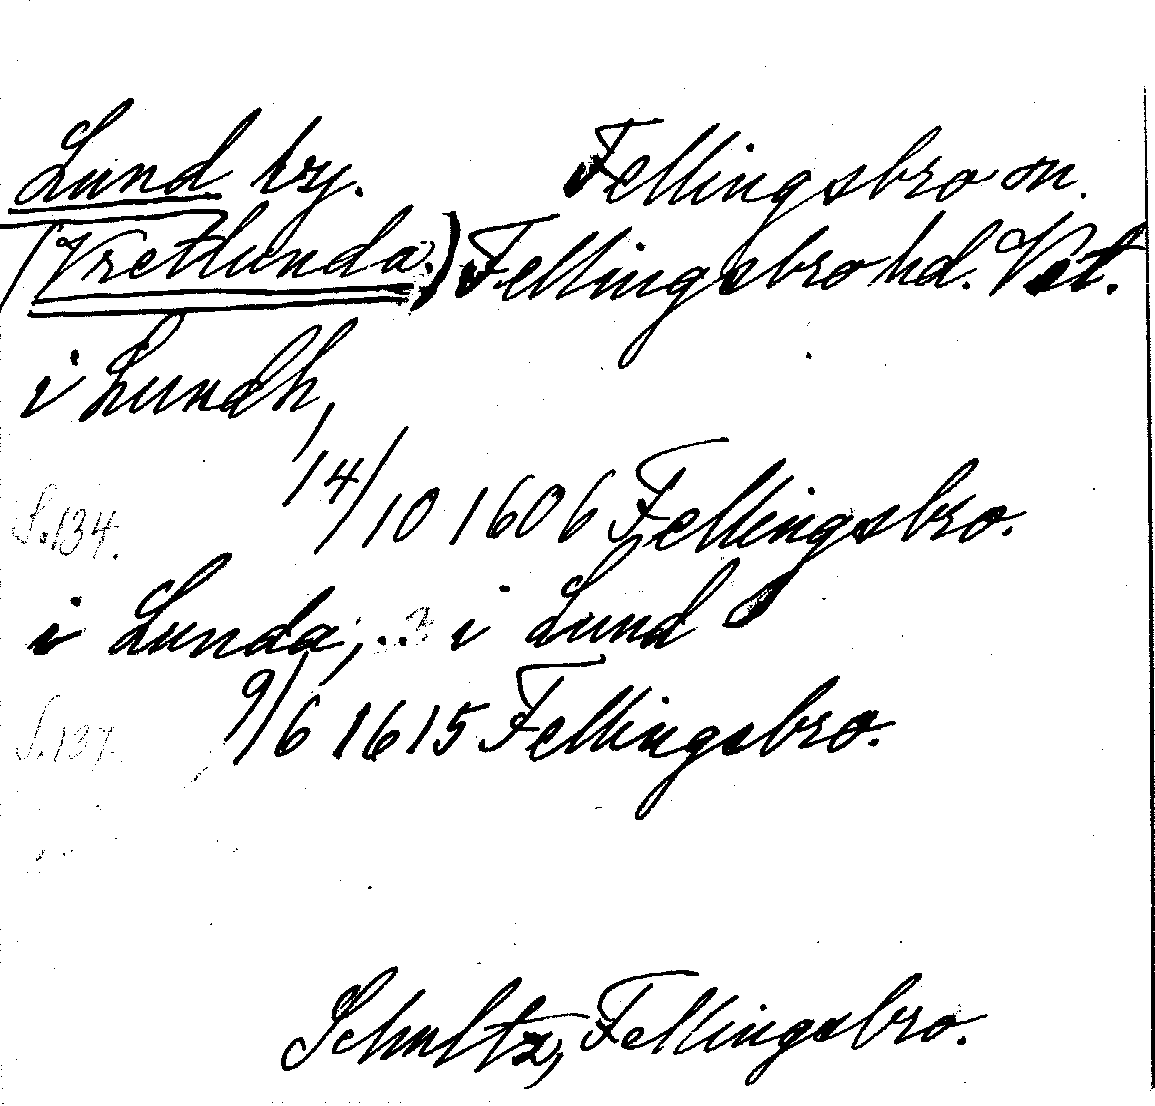 Lund by. Fellingsbro sn.
(Vretlunda.) Fellingsbro hd. Vstm.
i Lundh,
14/10 1606 Fellingsbro.
S. 134.
i Lunda, .. i Lund
9/6 1615 Fellingsbro.
S. 137.
Schultz, Fellingsbro.